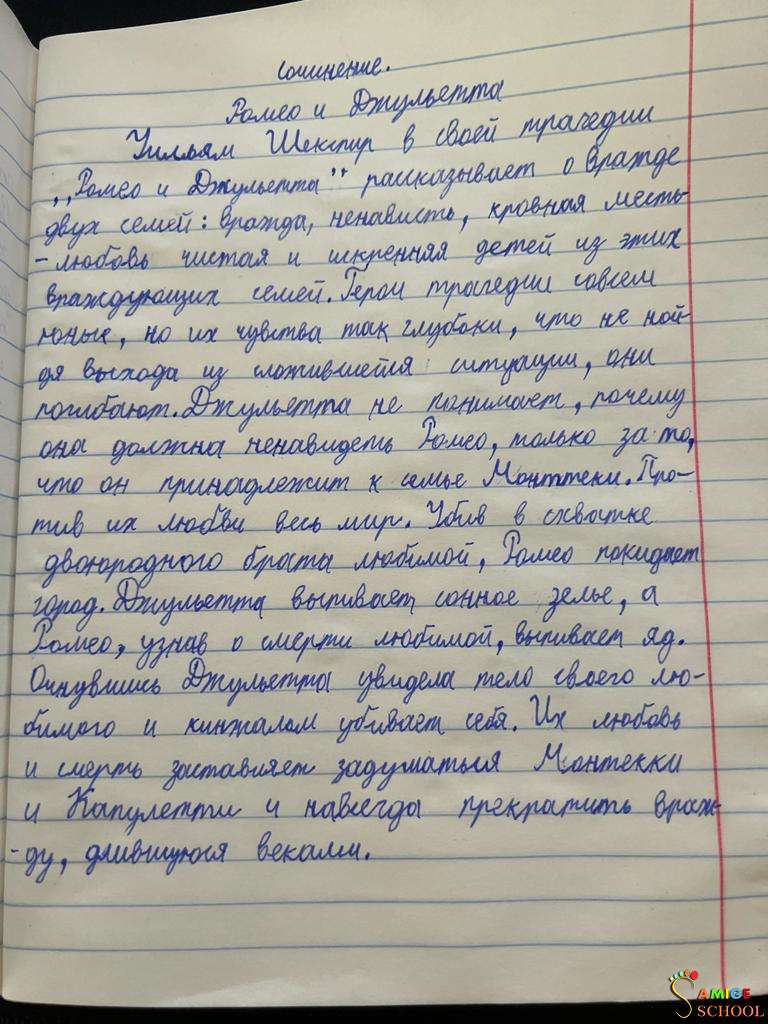 Сочинение.
Ромео и Джульетта
Уильям Шекспир в своей трагедии
,,Ромео и Джульетта" рассказывает о вражде
двух семей: вражда, ненависть, кровная месть
- любовь чистая и искренняя детей из этих
враждующих семей. Герои трагедии совсем
юные, но их чувства так глубоки, что не ной-
дя выхода из сложившейся ситуации, они
погибают. Джульетта не понимает, почему
она должна ненавидеть Ромео, только за то,
что он принадлежит к семье Монттеки. Про-
тив их любви весь мир. Убив в схватке
двоюродного брата любимой, Ромео покидает
город. Джульетта выпивает сонное зелье, а
Ромео, узнав о смерти любимой, выпивает яд.
Очнувшись Джульетта увидела тело своего лю-
бимого и кинжалом убивает себя. Их любовь
и смерть заставляет задуматься Монтекки
и Капулетти и навсегда прекратить враж-
-ду, длившуюся веками.
SAMIGE
SCHOOL